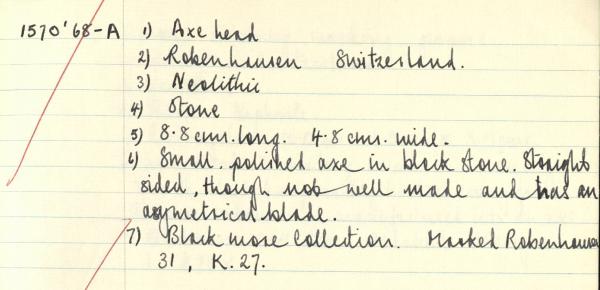 1570'68-A 1) Axe head
2) Robenhausen Switzerland.
3) Neolithic
4) Stone
5) 8.8 cms. long. 4.8 cms. wide.
6) Small, polished axe in black stone. Straight
sided, though not well made and has an
asymetrical blade.
7) Blackmore Collection. Marked Robenhausen
31, K.27.